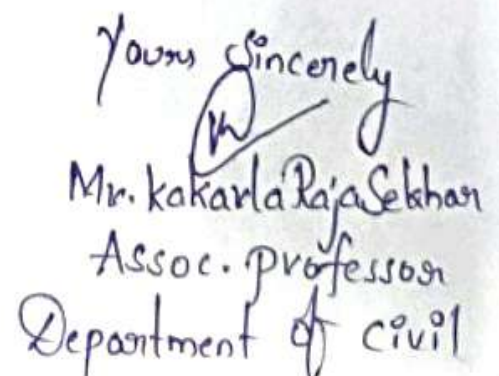 Yours Sincerely
Mr. Kakarla RajaSekhar
Assoc. professor
Department of civil